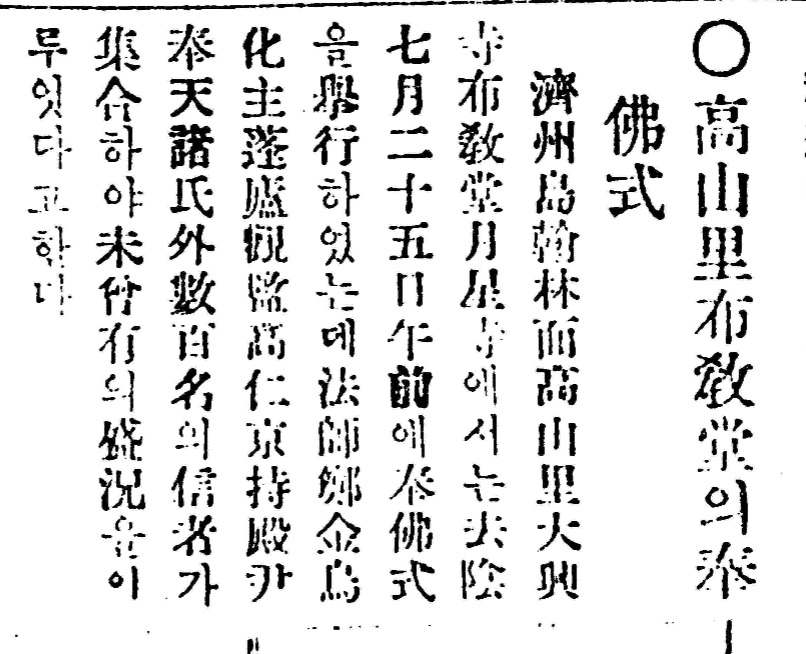 ○高山里布敎堂의奉
佛式
濟州島翰林面高山里大興
寺布敎堂月星寺에서는去陰
七月二十五日午前에奉佛式
을擧行하있는데法師金烏
化主蓬廬觀監高仁京持殿尹
奉天諸氏外數百名의信者가
集合하야未曾有의盛況을이
루잇다고한다